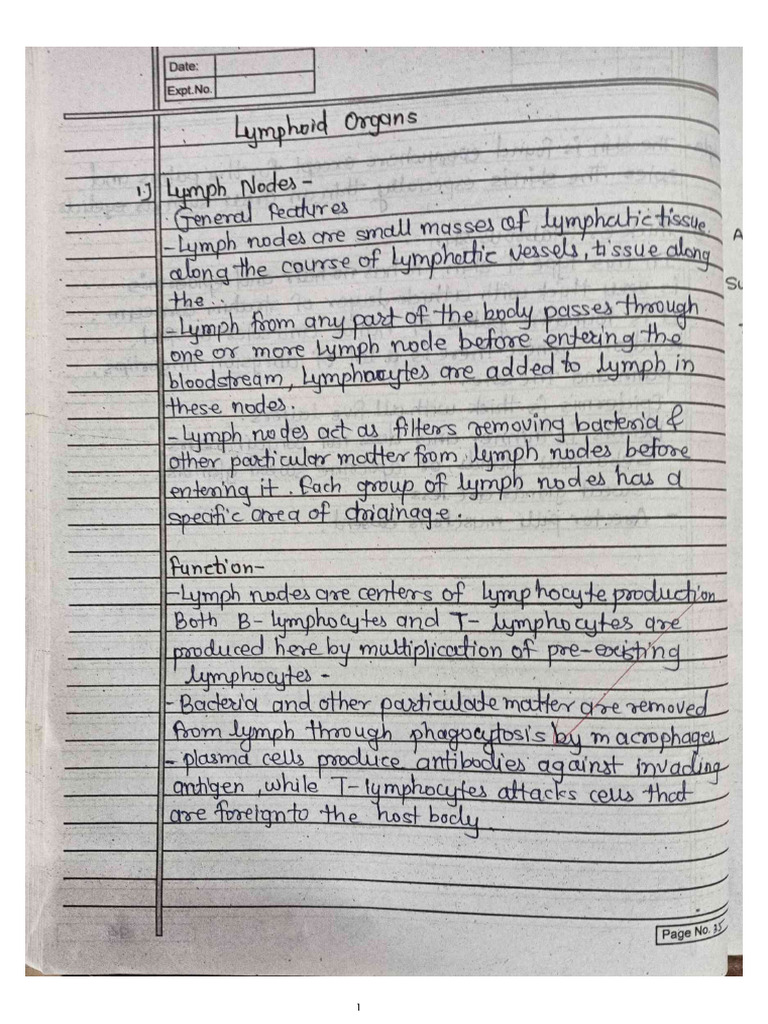 Date:
Expt.No.
Lymphoid Organs
1.) Lymph Nodes-
General features
-Lymph nodes are small masses of lymphatic tissue
along the course of lymphatic vessels, tissue along
the..
-Lymph from any part of the body passes through
one or more lymph node before entering the
bloodstream, Lymphocytes are added to lymph in
these nodes.
-Lymph nodes act as filters removing bacteria &
other particular matter from lymph nodes before
entering it. Each group of lymph nodes has a
specific area of driginage.
function-
-Lymph nodes are centers of lymphocyte production
Both B-lymphocytes and T-lymphocytes are
produced here by multiplication of pre-existing
lymphocytes-
-Bacteria and other particulate matter are removed
from lymph through phagocytosis by macrophages
-plasma cells produce antibodies against invading
antigen, while T-lymphocytes attacks cells that
are foreign to the host body.
Page No. 35
1